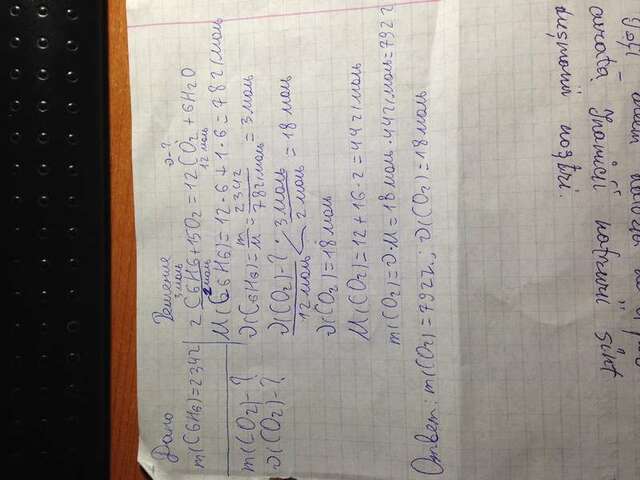 Дано
m(C6H6)=234г
m(CO2)-?
ν(CO2)-?
Решение
3моль ν-?
2C6H6+15O2=12CO2+6H2O
2моль 12моль
M(C6H6)=12·6+1·6=78г/моль
ν(C6H6)=m/M=234г/78г/моль=3моль
ν(CO2)-? : 3моль
12моль 2моль =18моль
ν(CO2)=18моль
M(CO2)=12+16·2=44г/моль
m(CO2)=ν·M=18моль·44г/моль=792г
Ответ: m(CO2)=792г; ν(CO2)=18моль